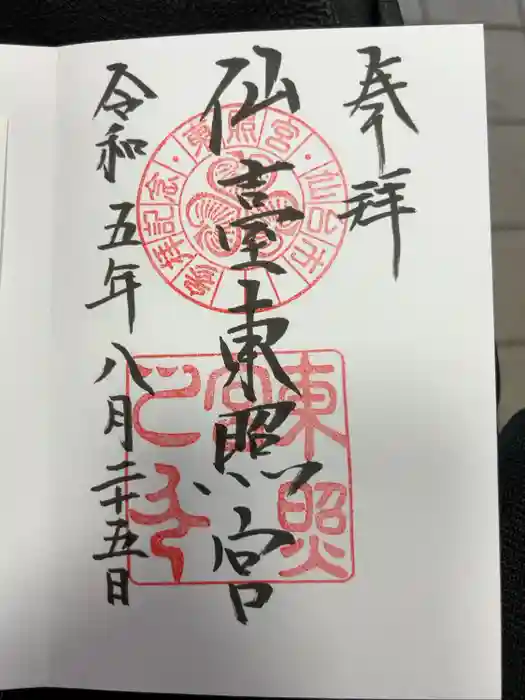 奉拝
仙臺東照宮
令和五年八月二十五日
東照宮・仙台市
参拝記念
東照宮